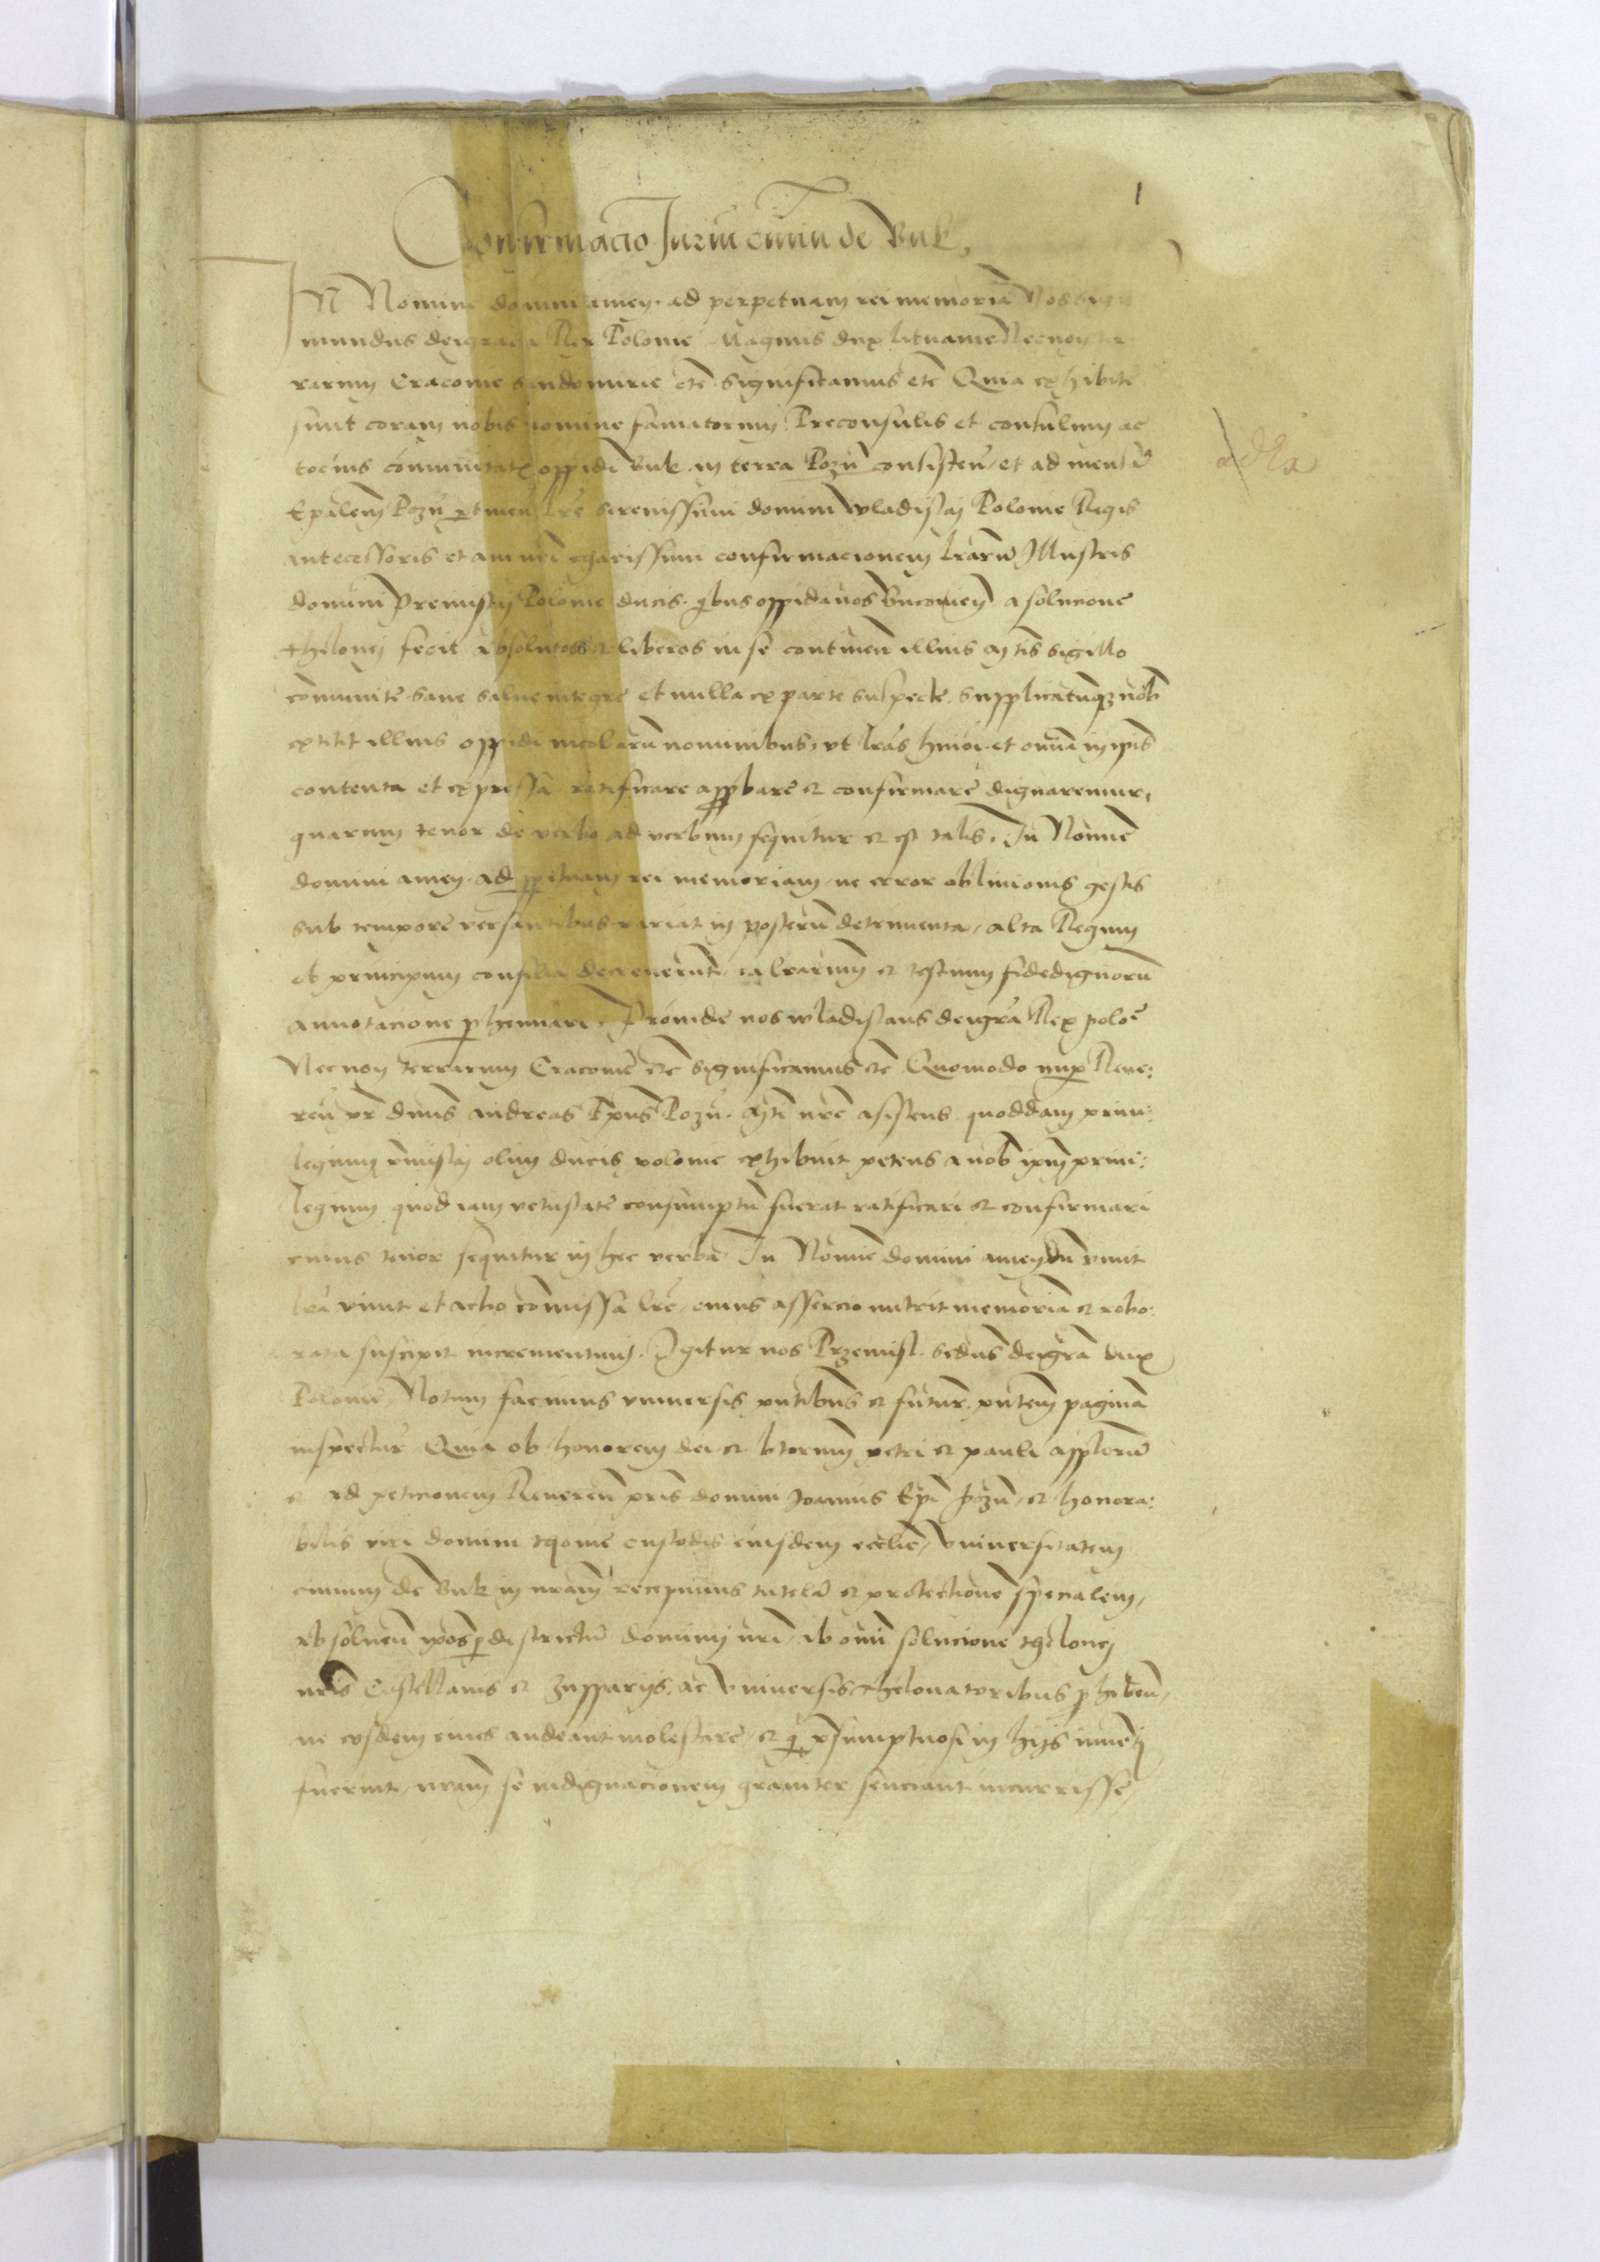 1
Confirmacio Juriū ciuiū de Buk.
IN Nomine domini amen. ad perpetuam rei memoriā Nos Sigis
mundus dei gracia Rex Polonie Magnus dux lituanie Necnon ter
rarum Cracouie Sandomirie etc̄ Significamus etc̄ Quia exhibite
sunt coram nobis nomine famatorum Preconsulis et consulum ac
tocius cōmunitatis oppidi Buk in terra Pozn̄ consisten̄ et ad mensā
Ep̄alem Pozn̄ ꝑtinen̄ lr̄e Serenissimi domini Wladislai Polonie Regis
antecessoris et aui nr̄i charissimi confirmacionem lr̄arū Illustris
domini Premislai Polonie ducis. qͥbus oppidanos Bucouien̄ a solucione
thelonei fecit absolutos et liberos in se continen̄ illius mtis sigillo
cōmunite. sane salue integre et nulla ex parte suspecte. Supplicatumqꝫ nob̄
extitit illius oppidi incolarū nominibus, vt lr̄as hmōi. et omīa in ip̄is
contenta et expressa ratificare app̄bare et confirmare dignaremur,
quarum tenor de verbo ad verbum sequitur et est talis. In Nomine
domini amen. ad ꝑpetuam rei memoriam ne error obliuionis gestis
sub tempore versantibus pariat in posterū detrimenta, alta Regum
et principum consilia decreuerunt ea lr̄arum et testium fidedignorū
annotacione ꝑhennari. Proinde nos Wladislaus dei gr̄a Rex polōe
Necnon terrarum Cracouie etc̄ Significamus etc̄ Quomodo nuꝑ Reue:
ren̄ pr̄ dn̄us Andreas Ep̄us Pozn̄. mti nr̄e asistens quoddam priui:
legium p̄mislai olim ducis polonie exhibuit petens a nob̄ ip̄m priui:
legium quod iam vetustate consumptū fuerat ratificari et confirmari
cuius tenor sequitur in hec verba. In Nomine domini amen dū viuit
lr̄a viuit et actio cōmissa lr̄e, cuius assercio nutrit memoriā et robo:
rata suscipit incrementum. Igitur nos Przemisl. Sedūs dei gr̄a dux
Polonie, Notum facimus vniuersis pn̄tibus et futur̄. pn̄tem paginā
inspectur̄ Quia ob honorem dei et btorum petri et pauli app̄lorū
et ad peticionem Reueren̄ pr̄is domini Joannis Ep̄i Pozn̄, et honora:
bilis viri domini thome custodis eiusdem ecclīe, vniuersitatem
ciuium de Buk in nr̄am recepimus tutelā et protectionē specialem,
absoluen̄ ip̄os ꝑ districtū dominij nr̄i, ab omī solucione thelonej
nr̄is Castellanis et Zupparijs. ac vniuersis thelonatoribus ꝓhiben̄,
ne eosdem ciues audeant molestare, et qͥ p̄sumptuosi in hijs inuenti
fuerint, nr̄am se indignacionem grauiter senciant incurrisse,